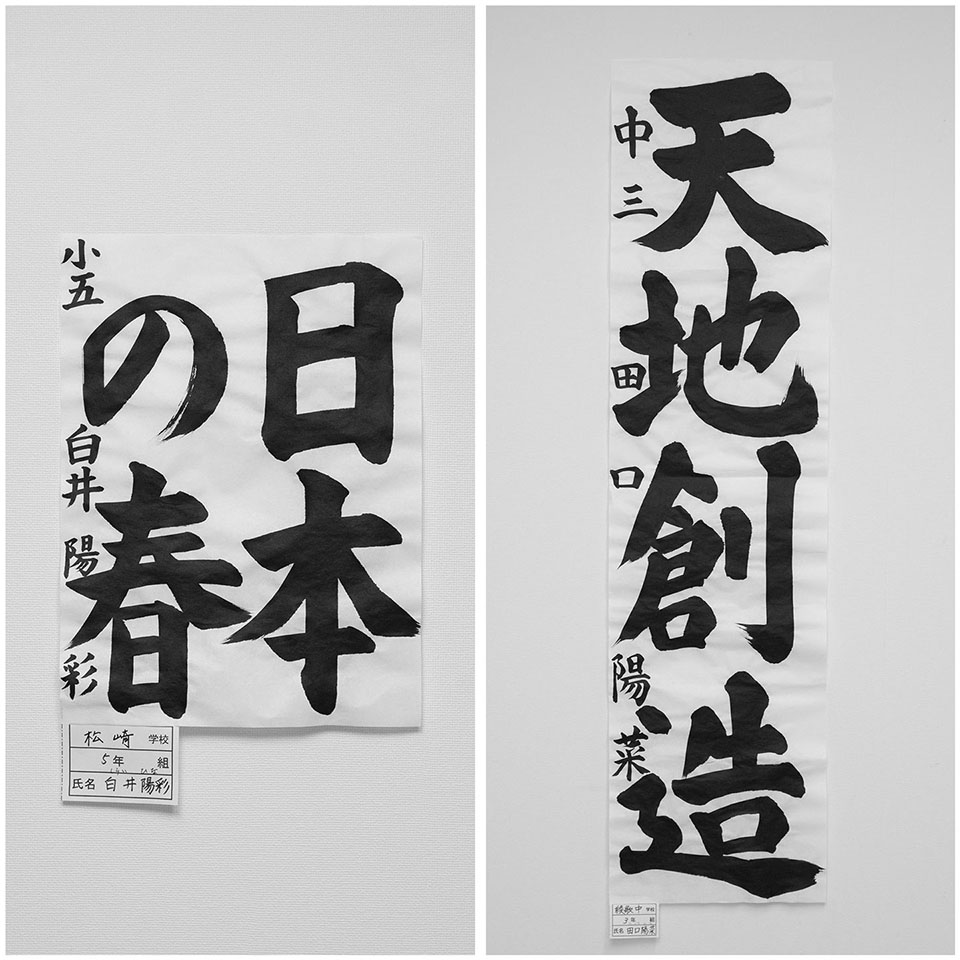 日本
の春
小五 白井陽彩
松崎 学校
5年 組
しらい ひな
氏名 白井陽彩
天地創造
中三 田口陽菜
綾歌中 学校
3年 組
氏名 田口陽菜